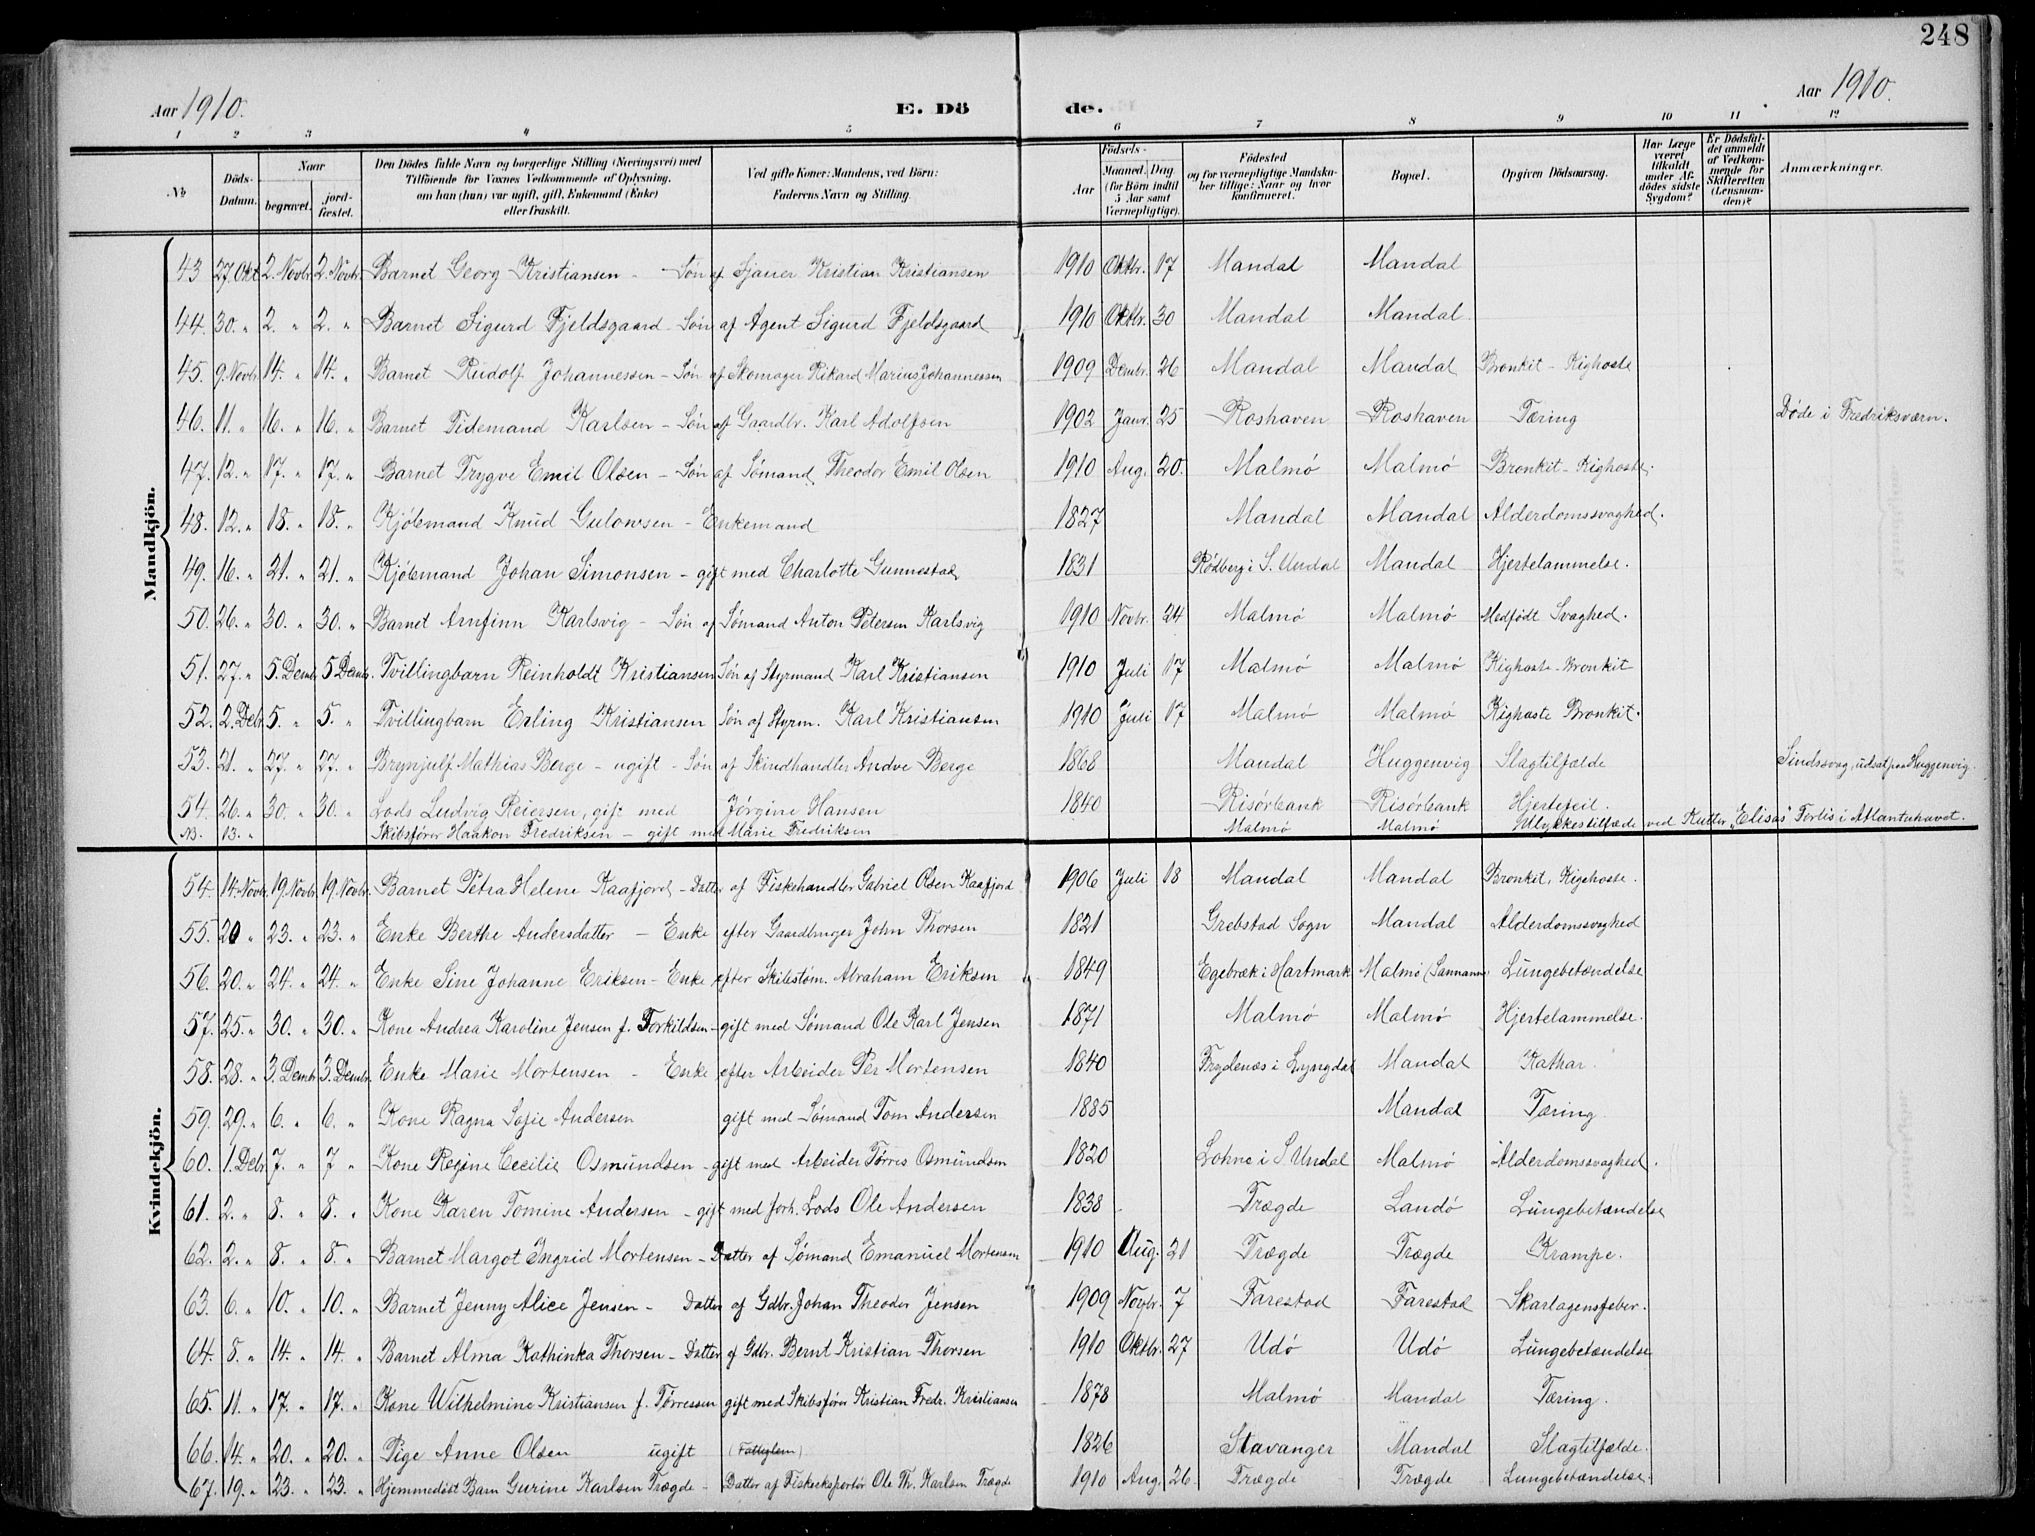 248
Aar 1910. E. Dö de. Aar 1910.
1 2 3 4 5 6 7 8 9 10 11 12
No
Döds-Datum.
Naar
begravet.
jord-fæstet.
Den Dödes fulde Navn og borgerlige Stilling (Næringsvei) med
Tilföiende for Voxnes Vedkommende af Oplysning,
om han (hun) var ugift, gift, Enkemand (Enke)
eller fraskilt.
Ved gifte Koner: Mandens, ved Börn:
Faderens Navn og Stilling.
Födsels-
Aar
Maaned. Dag
(for Börn indtil
5 Aar samt
Værnepligtige).
Födested
og for værnepligtige Mandska-
ber tillige: Naar og hvor
konfirmeret.
Bopæl.
Opgiven Dödsaarsag.
Har Læge
været
tilkaldt
under Af-
dödes sidste
Sygdom?
Er Dödsfal-
det anmeldt
af Vedkom-
mende for
Skifteretten
(Lensman-
den)?
Anmærkninger.
Mandkjön.
43 27. Okt. 2. Novbr. 2. Novbr. Barnet Georg Kristiansen - Søn af Sjauer Kristian Kristiansen 1910 Oktbr. 17 Mandal Mandal
44. 30. " 2. " 2. " Barnet Sigurd Fjeldsgaard - Søn af Agent Sigurd Fjeldsgaard 1910 Oktbr. 30 Mandal Mandal
45. 9. Novbr. 14. " 14. " Barnet Rudolf Johannessen - Søn af Skomager Rikard Marius Johannessen 1909 Dembr. 26 Mandal Mandal Bronkit - Kighoste
46. 11. " 16. " 16. " Barnet Tidemand Karlsen - Søn af Gaardbr. Karl Adolfsen 1902 Janr. 25 Roshaven Roshaven Tæring Døde i Fredriksværn.
47. 12. " 17. " 17. " Barnet Trygve Emil Olsen - Søn af Sømand Theodor Emil Olsen 1910 Aug. 20. Malmø Malmø Bronkit - Kighoste.
48. 12. " 18. " 18. " Kjøbmand Knud Gulowsen - Enkemand 1827 Mandal Mandal Alderdomssvaghed.
49. 16. " 21. " 21. " Kjøbmand Johan Simonsen - gift med Charlotte Gunnestad 1831 Rødberg i S. Undal Mandal Hjertelammelse.
50. 26. " 30. " 30. " Barnet Arnfinn Karlsvig - Søn af Sømand Anton Petersen Karlsvig 1910 Novbr. 24 Malmø Malmø Medfødt Svaghed.
51. 27. " 5. Dembr. 5 Dembr. Tvillingbarn Reinholdt Kristiansen Søn af Styrmand Karl Kristiansen 1910 Juli 17 Malmø Malmø Kighoste - Bronkit
52. 2. Debr. 5. " 5. " Tvillingbarn Erling Kristiansen Søn af Styrm. Karl Kristiansen 1910 Juli 17 Malmø Malmø Kighoste Bronkit.
53. 21. " 27. " 27. " Brynjulf Mathias Berge - ugift - Søn af Skindhandler Andre Berge 1868 Mandal Huggenvig Slagtilfælde Sindssvag, udsat paa Huggenvig.
54. 26. " 30. " 30. " Lods Ludvig Reiersen, gift med Jörgine Hansen 1840 Risörbank Risörbank Hjertefeil.
NB. 13. " Skibsfører Haakon Fredriksen - gift med Marie Fredriksen Malmø Malmø Ulykkestilfælde ved Kutter "Elisas" Forlis i Atlanterhavet.
Kvindekjön.
54. 14. Novbr. 19. Novbr. 19. Novbr. Barnet Petra Helene Kaafjord - Datter af Fiskehandler Gabriel Olsen Kaafjord 1906 Juli 18 Mandal Mandal Bronkit, Kighoste.
55. 20 " 23. " 23. " Enke Berthe Andersdatter - Enke efter Gaardbruger John Thorsen 1821 Grebstad Sogn Mandal Alderdomssvaghed
56. 20. " 24. " 24. " Enke Sine Johanne Eriksen - Enke efter Skibstøm. Abraham Eriksen 1849 Egebræk i Hartmark Malmø (Sannanæ) Lungebetændelse
57. 25. " 30. " 30. " Kone Andrea Karoline Jensen f. Torkildsen - gift med Sømand Ole Karl Jensen 1871 Malmø Malmø Hjertelammelse.
58. 28. " 3. Dembr. 3. Dembr. Enke Marie Mortensen - Enke efter Arbeider Per Mortensen 1840 Frydenæs i Lyngdal Mandal Kathar.
59. 29. " 6. " 6. " Kone Ragna Sofie Andersen gift med Sømand Tom Andersen 1885 Mandal Tæring
60. 1. Debr. 7. " 7 " Kone Regine Cecilie Osmundsen - gift med Arbeider Tørris Osmundsen 1820 Lohne i S. Undal Malmø Alderdomssvaghed.
61. 2. " 8. " 8. " Kone Karen Tomine Andersen - gift med forh. Lods Ole Andersen 1838 Trægde Landø Lungebetændelse
62. 2. " 8. " 8. " Barnet Margot Ingrid Mortensen - Datter af Sømand Emanuel Mortensen 1910 Aug. 21 Trægde Trægde Krampe.
63. 6. " 10. " 10. " Barnet Jenny Alice Jensen - Datter af Gdbr. Johan Theodor Jensen 1909 Novbr. 7 Farestad Farestad Skarlagensfeber.
64. 8. " 14. " 14. " Barnet Alma Kathinka Thorsen - Datter af Gdbr. Bernt Kristian Thorsen 1910 Oktbr. 27 Udø Udø Lungebetændelse
65. 11. " 17. " 17. " Kone Wilhelmine Kristiansen f. Tørressen gift med Skibsfører Kristian Fredr. Kristiansen 1878 Malmø Mandal Tæring.
66. 14. " 20. " 20. " Pige Anne Olsen ugift (Fattiglem) 1826 Stavanger Mandal Slagtilfælde.
67. 19. " 23. " 23. " Hjemmedøbt Barn Gurine Karlsen Trægde - Datter af Fiskeeksportør Ole Th. Karlsen Trægde 1910 Aug. 26 Trægde Trægde Lungebetændelse.